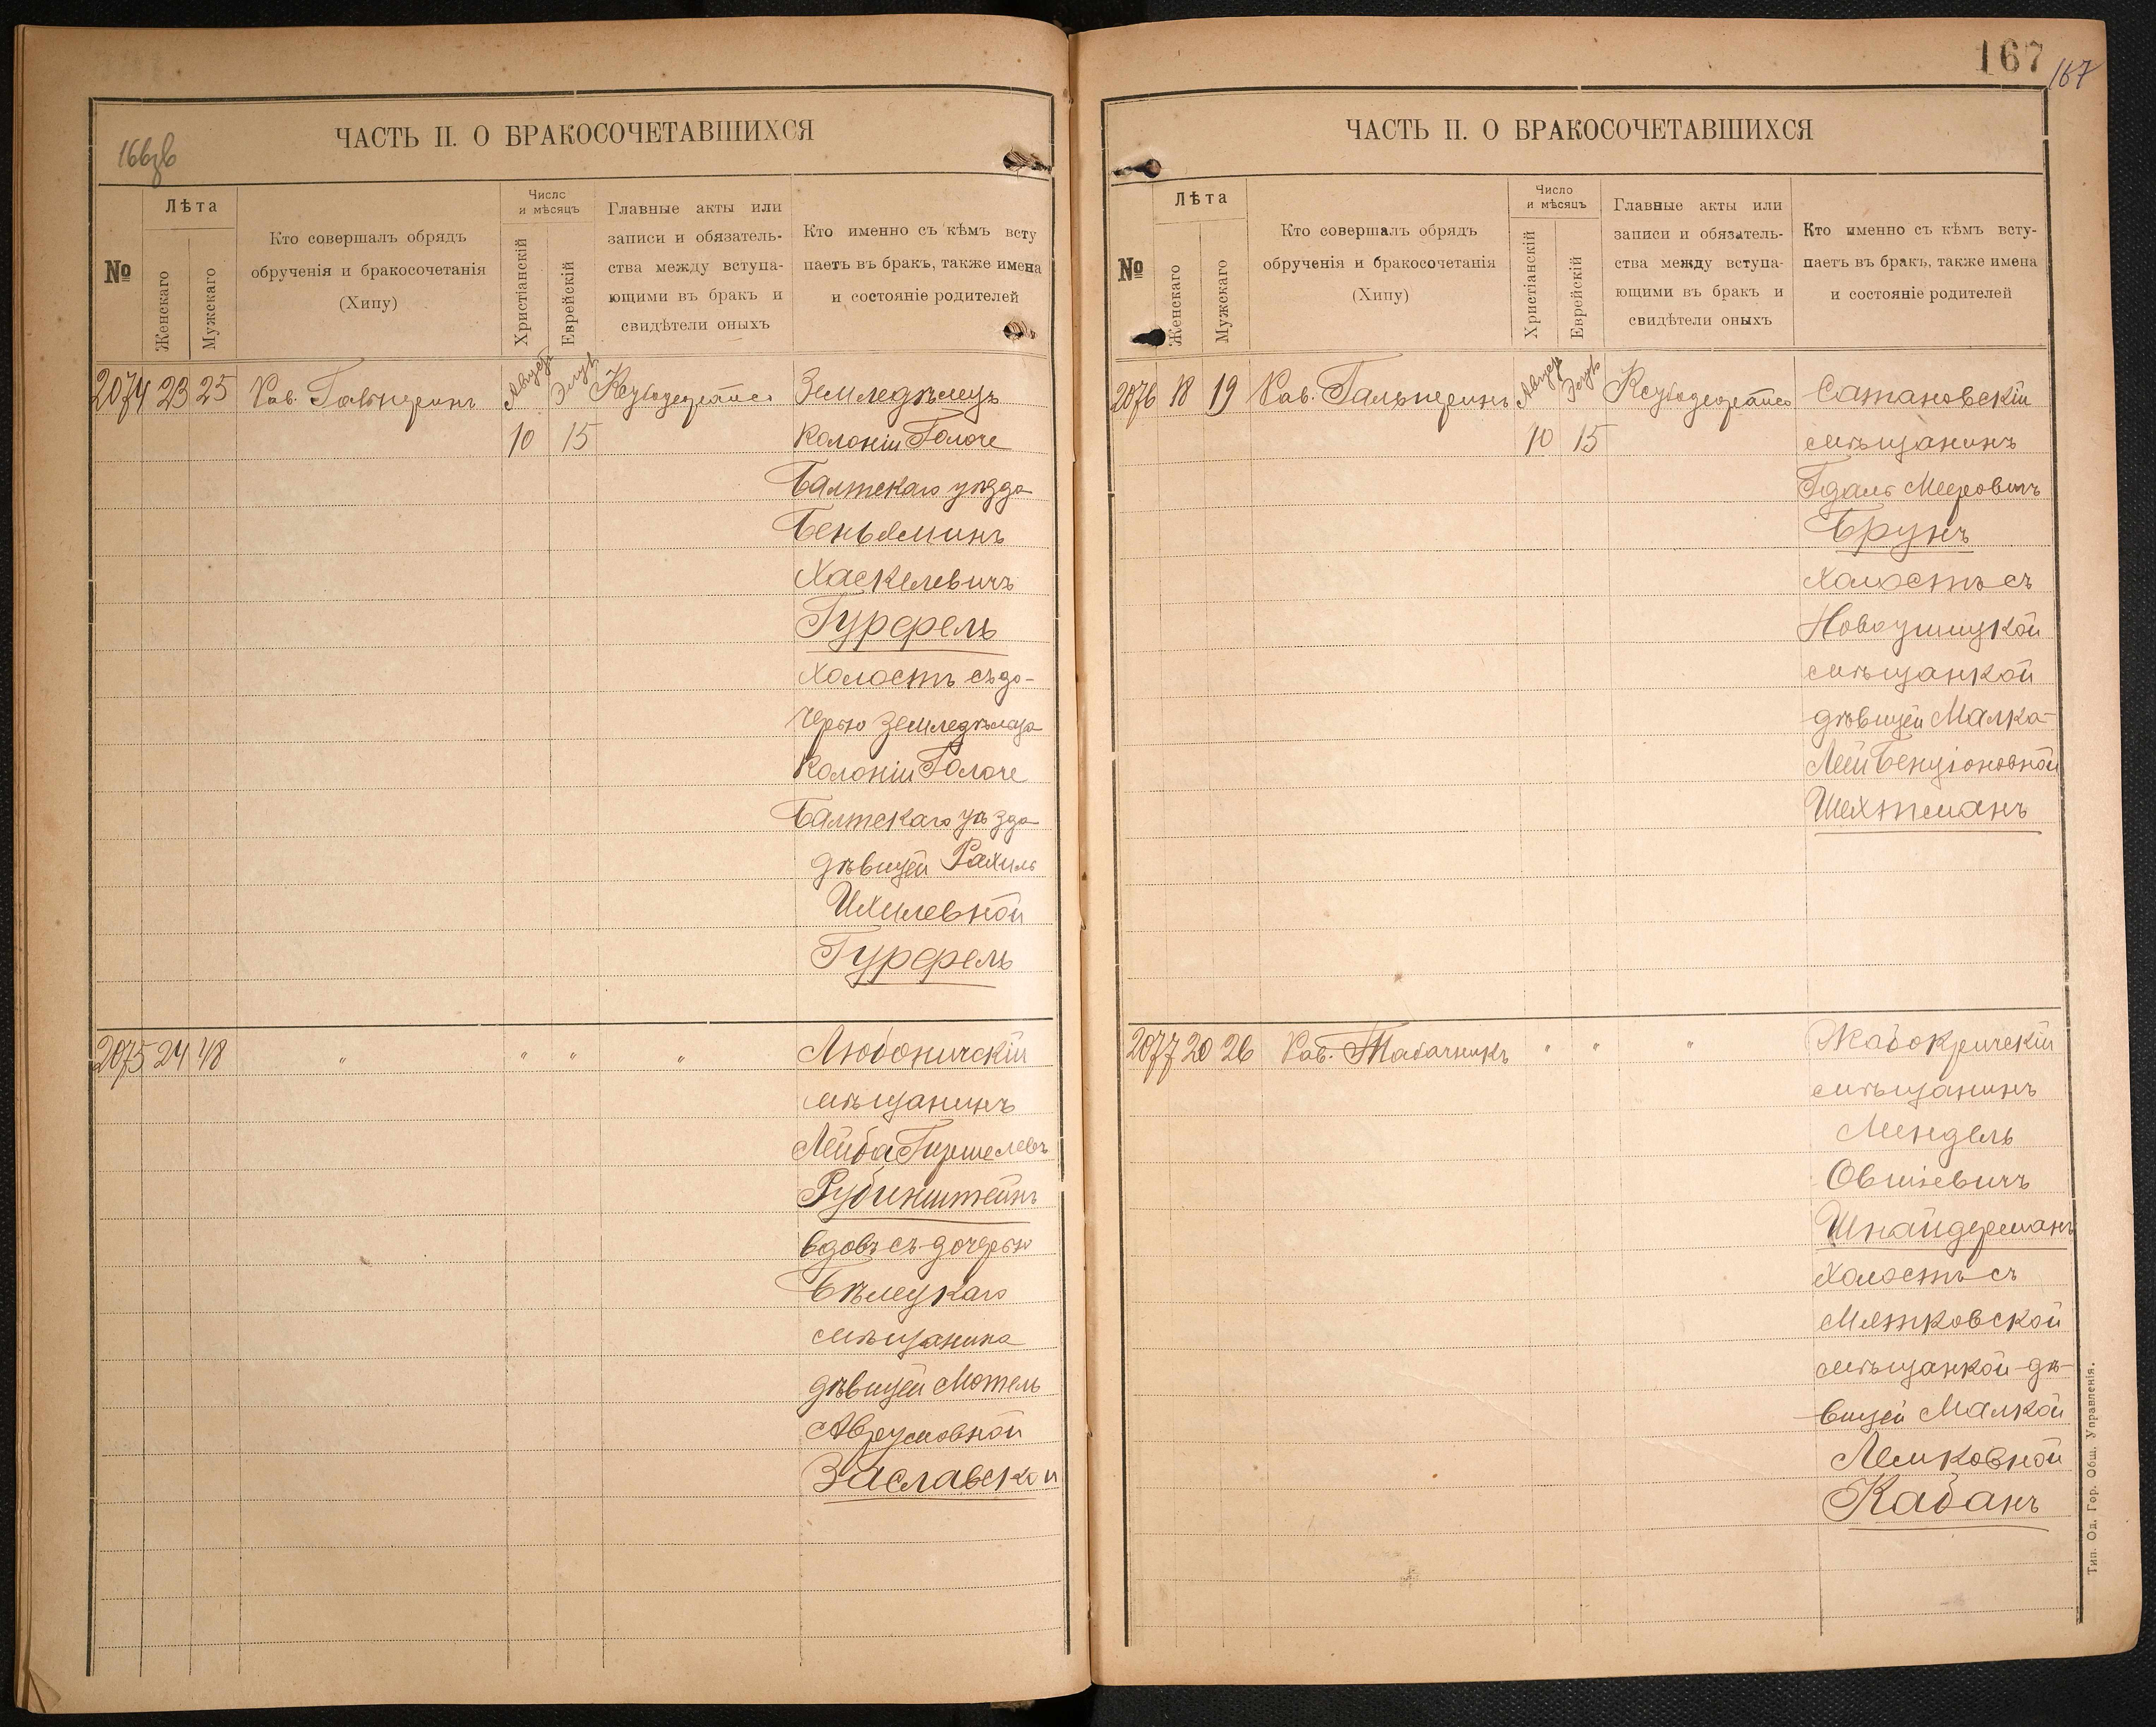 166зв
ЧАСТЬ II. О БРАКОСОЧЕТАВШИХСЯ
№
Лѣта
Женскаго
Мужскаго
Кто совершалъ обрядъ
обрученія и бракосочетанія
(Хипу)
Число
и мѣсяцъ
Христіанскій
Еврейскій
Главные акты или
записи и обязатель-
ства между вступа-
ющими въ бракъ и
свидѣтели оныхъ
Кто именно съ кѣмъ всту
паетъ въ бракъ, также имена
и состояніе родителей
2074 23 25 Рав. Гальперинъ
Август Элулъ
10 15
Земледѣлецъ
Колоніи Голоче
Балтскаго уѣзда
Беньяминъ
Хаскелевичъ
Гурфель
холостъ съ до-
черью земледѣльца
Колоніи Голоче
Балтскаго уѣзда
дѣвицей Рахиль
Ихилевной
Гурфель
2075 24 48 " " " "
Любоничскій
мѣщанинъ
Лейба Гиршелевъ
Рубинштейнъ
вдовъ съ дочерью
Бѣлецкаго
мѣщанина
дѣвицей Мотель
Аврумовной
Заславской
167
167
ЧАСТЬ II. О БРАКОСОЧЕТАВШИХСЯ
№
Лѣта
Женскаго
Мужскаго
Кто совершалъ обрядъ
обрученія и бракосочетанія
(Хипу)
Число
и мѣсяцъ
Христіанскій
Еврейскій
Главные акты или
записи и обязатель-
ства между вступа-
ющими въ бракъ и
свидѣтели оныхъ
Кто именно съ кѣмъ всту-
паетъ въ бракъ, также имена
и состояніе родителей
2076 18 19 Рав. Гальперинъ
Август Элулъ
10 15
Сатановскій
мѣщанинъ
Гдаль Мееровичъ
Брунъ
холостъ съ
Новоушицкой
мѣщанкой
дѣвицей Малка-
Лей Бенціоновной
Шехтманъ
2077 20 26 Рав. Табачникъ " " "
Жабокричскій
мѣщанинъ
Мендель
Овшіевичъ
Шнайдерманъ
холостъ съ
Мястковской
мѣщанкой дѣ-
вицей Малкой
Лемковной
Кабанъ
Тип. Од. Гор. Общ. Управленія.